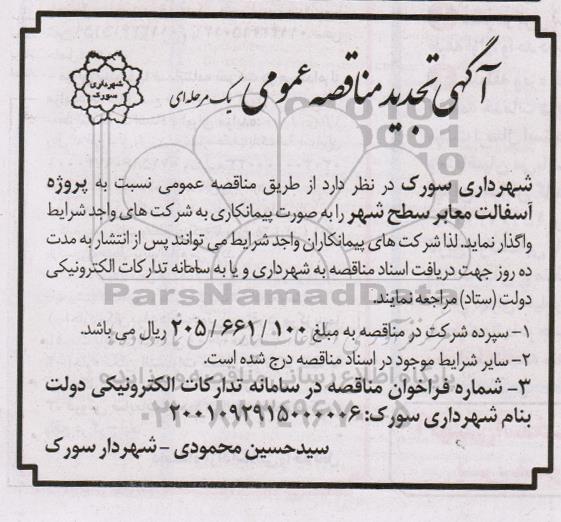 آگهی تجدید مناقصه عمومی یک مرحله‌ای
شهرداری
سورک
شهرداری سورک در نظر دارد از طریق مناقصه عمومی نسبت به پروژه
آسفالت معابر سطح شهر را به صورت پیمانکاری به شرکت های واجد شرایط
واگذار نماید. لذا شرکت های پیمانکاران واجد شرایط می توانند پس از انتشار به مدت
ده روز جهت دریافت اسناد مناقصه به شهرداری و یا به سامانه تدارکات الکترونیکی
دولت (ستاد) مراجعه نمایند.
۱- سپرده شرکت در مناقصه به مبلغ ۲۰۵/۶۶۱/۱۰۰ ریال می باشد.
۲- سایر شرایط موجود در اسناد مناقصه درج شده است.
۳- شماره فراخوان مناقصه در سامانه تدارکات الکترونیکی دولت
بنام شهرداری سورک: ۲۰۰۱۰۹۲۹۱۵۰۰۰۰۰۶
سیدحسین محمودی - شهردار سورک
ParsNamadData